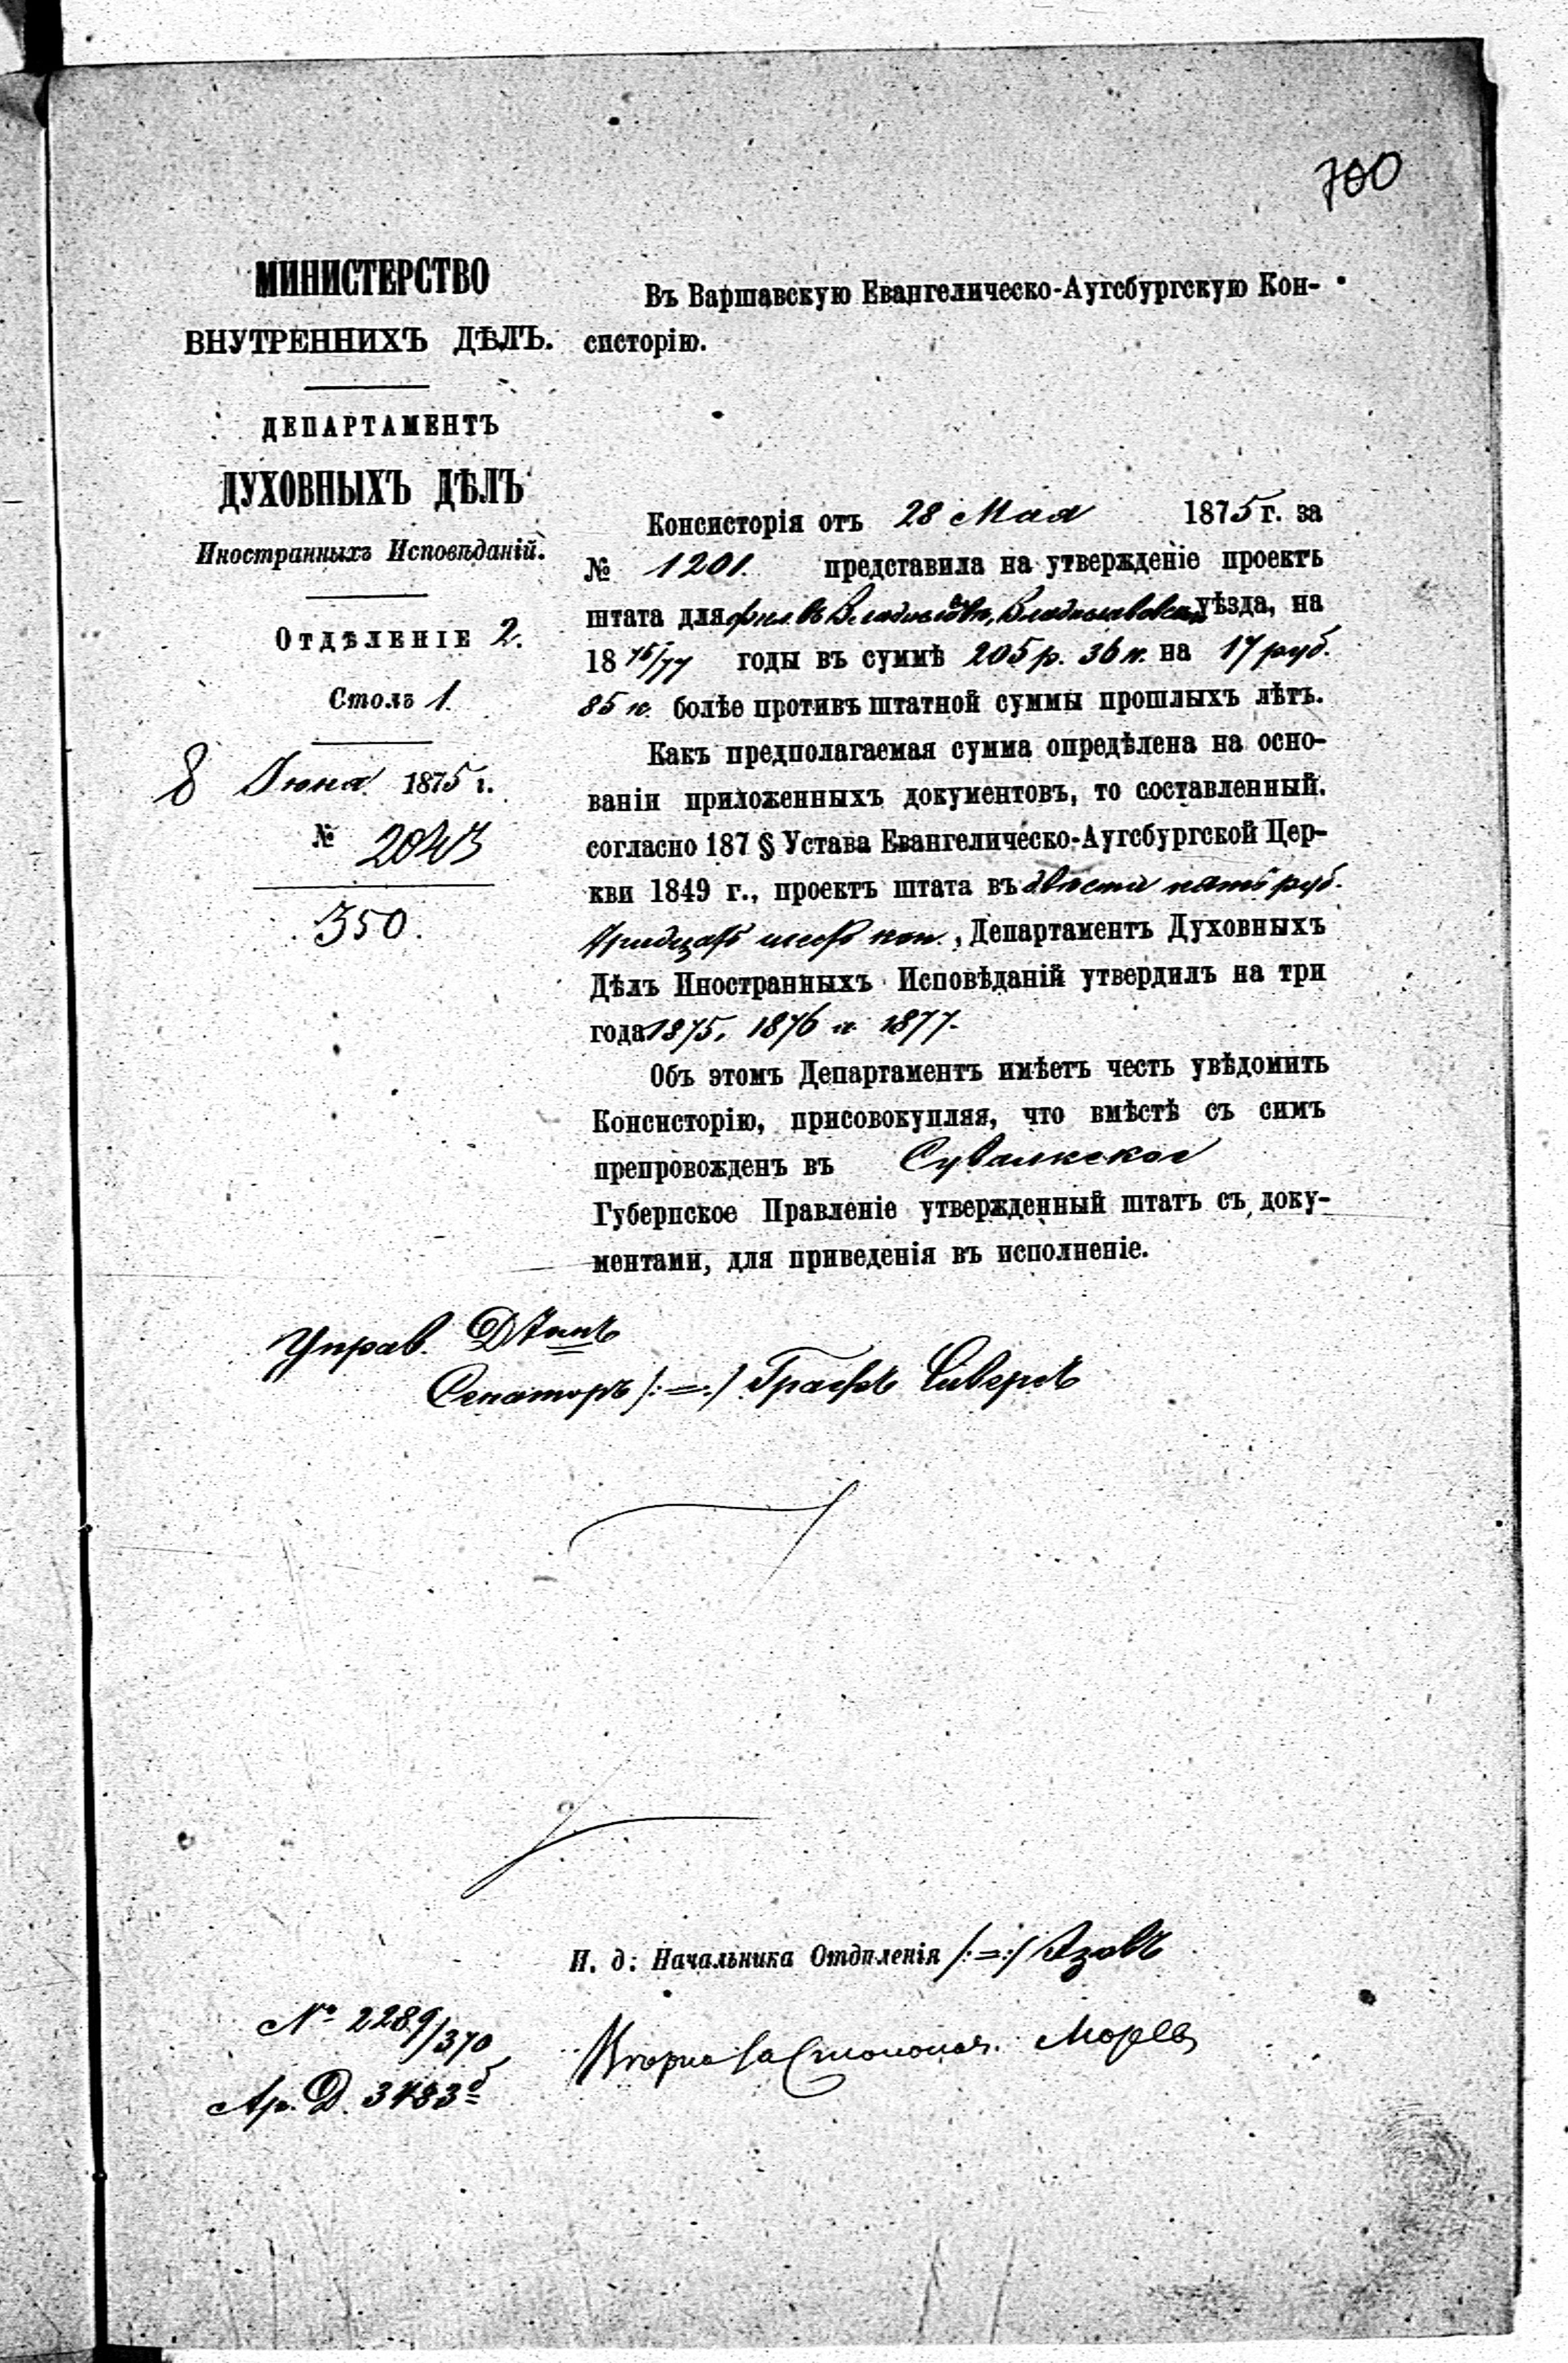 700
МИНИСТЕРСТВО
ВНУТРЕННИХЪ ДѢЛЪ.
ДЕПАРТАМЕНТЪ
ДУХОВНЫХЪ ДѢЛЪ
Иностранныхъ Исповѣданій.
ОТДѢЛЕНІЕ 2.
Столъ 1.
8 Июня 1875 г.
№ 2043
350.
Въ Варшавскую Евангелическо-Аугсбургскую Кон-
систорію.
Консисторія отъ 28 Мая 1875 г. за
№ 1201. представила на утвержденіе проектъ
штата для фил. въ Владиславовѣ, Владиславовскаго уѣзда, на
18 75/77 годы въ суммѣ 205 р. 36 к. на 17 руб.
85 к. болѣе противъ штатной суммы прошлыхъ лѣтъ.
Какъ предполагаемая сумма опредѣлена на осно-
ваніи приложенныхъ документовъ, то составленный.
согласно 187 § Устава Евангелическо-Аугсбургской Цер-
кви 1849 г., проектъ штата въ двѣсти пять руб.
тридцать шесть коп., Департаментъ Духовныхъ
Дѣлъ Иностранныхъ Исповѣданій утвердилъ на три
года 1875, 1876 и 1877.
Объ этомъ Департаментъ имѣетъ честь увѣдомить
Консисторію, присовокупляя, что вмѣстѣ съ симъ
препровожденъ въ Сувалкское
Губернское Правленіе утвержденный штатъ съ доку-
ментами, для приведенія въ исполненіе.
Управ.
Сенаторъ /:=:/ Графъ Сиверсъ
И. д: Начальника Отдѣленія /:=:/ Язовъ
№ 2289/370
Ар. Д. 3483
Вѣрно: за Столонач.